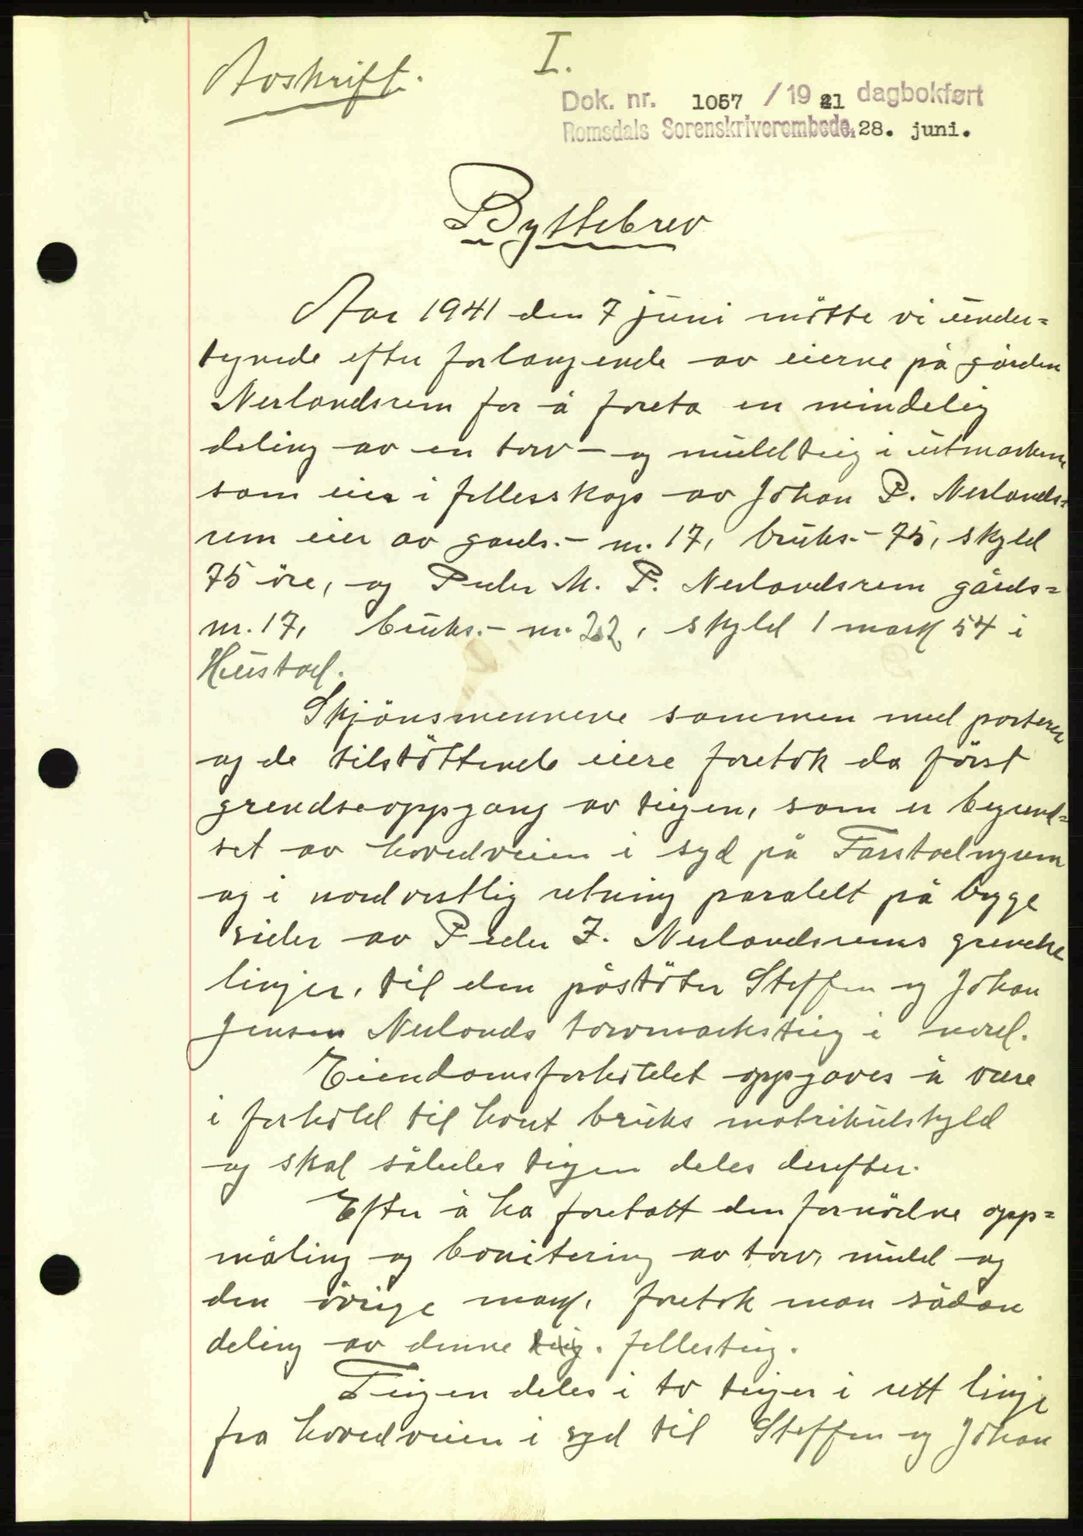 Avskrift.
I.
Dok. nr. 1057 / 1941 dagbokført
Romsdals Sorenskriverembede, 28. juni.
Byttebrev
Aar 1941 den 7 juni møtte vi under=
tegnede efter forlangende av eierne på gården
Nerlandsrem for å foreta en mindelig
deling av en torv- og muldteig i utmarken
som eies i fellesskap av Johan P. Nerlands=
rem eier av gards.- nr. 17, bruks.- 75, skyld
75 øre, og Peder M. P. Nerlandsrem gårds=
nr. 17, bruks.- nr. 22, skyld 1 mark 54 i
Hustad.
Skjönsmennene sammen med parterne
og de tilstöttende eiere foretok da først
grendseoppgang av teigen, som er begrend=
set av hovedveien i syd på Farstad
og i nordvestlig retning paralelt på begge
sider av Peder J. Nerlandsrems grendse
linjer, til den påstöter Steffen og Johan
Jensen Nerlands torvmarksteig i nord.
Eiendomsforholdet oppgaves å være
i forhold til hvert bruks matrikulskyld
og skal således teigen deles derefter.
Efter å ha foretatt den fornödne opp=
måling og bonitering av torv, muld og
den övrige mark, foretok man sådan
deling av denne teig. fellesteig.
Teigen deles i to teiger i rett linje
fra hovedveien i syd til Steffen og Johan